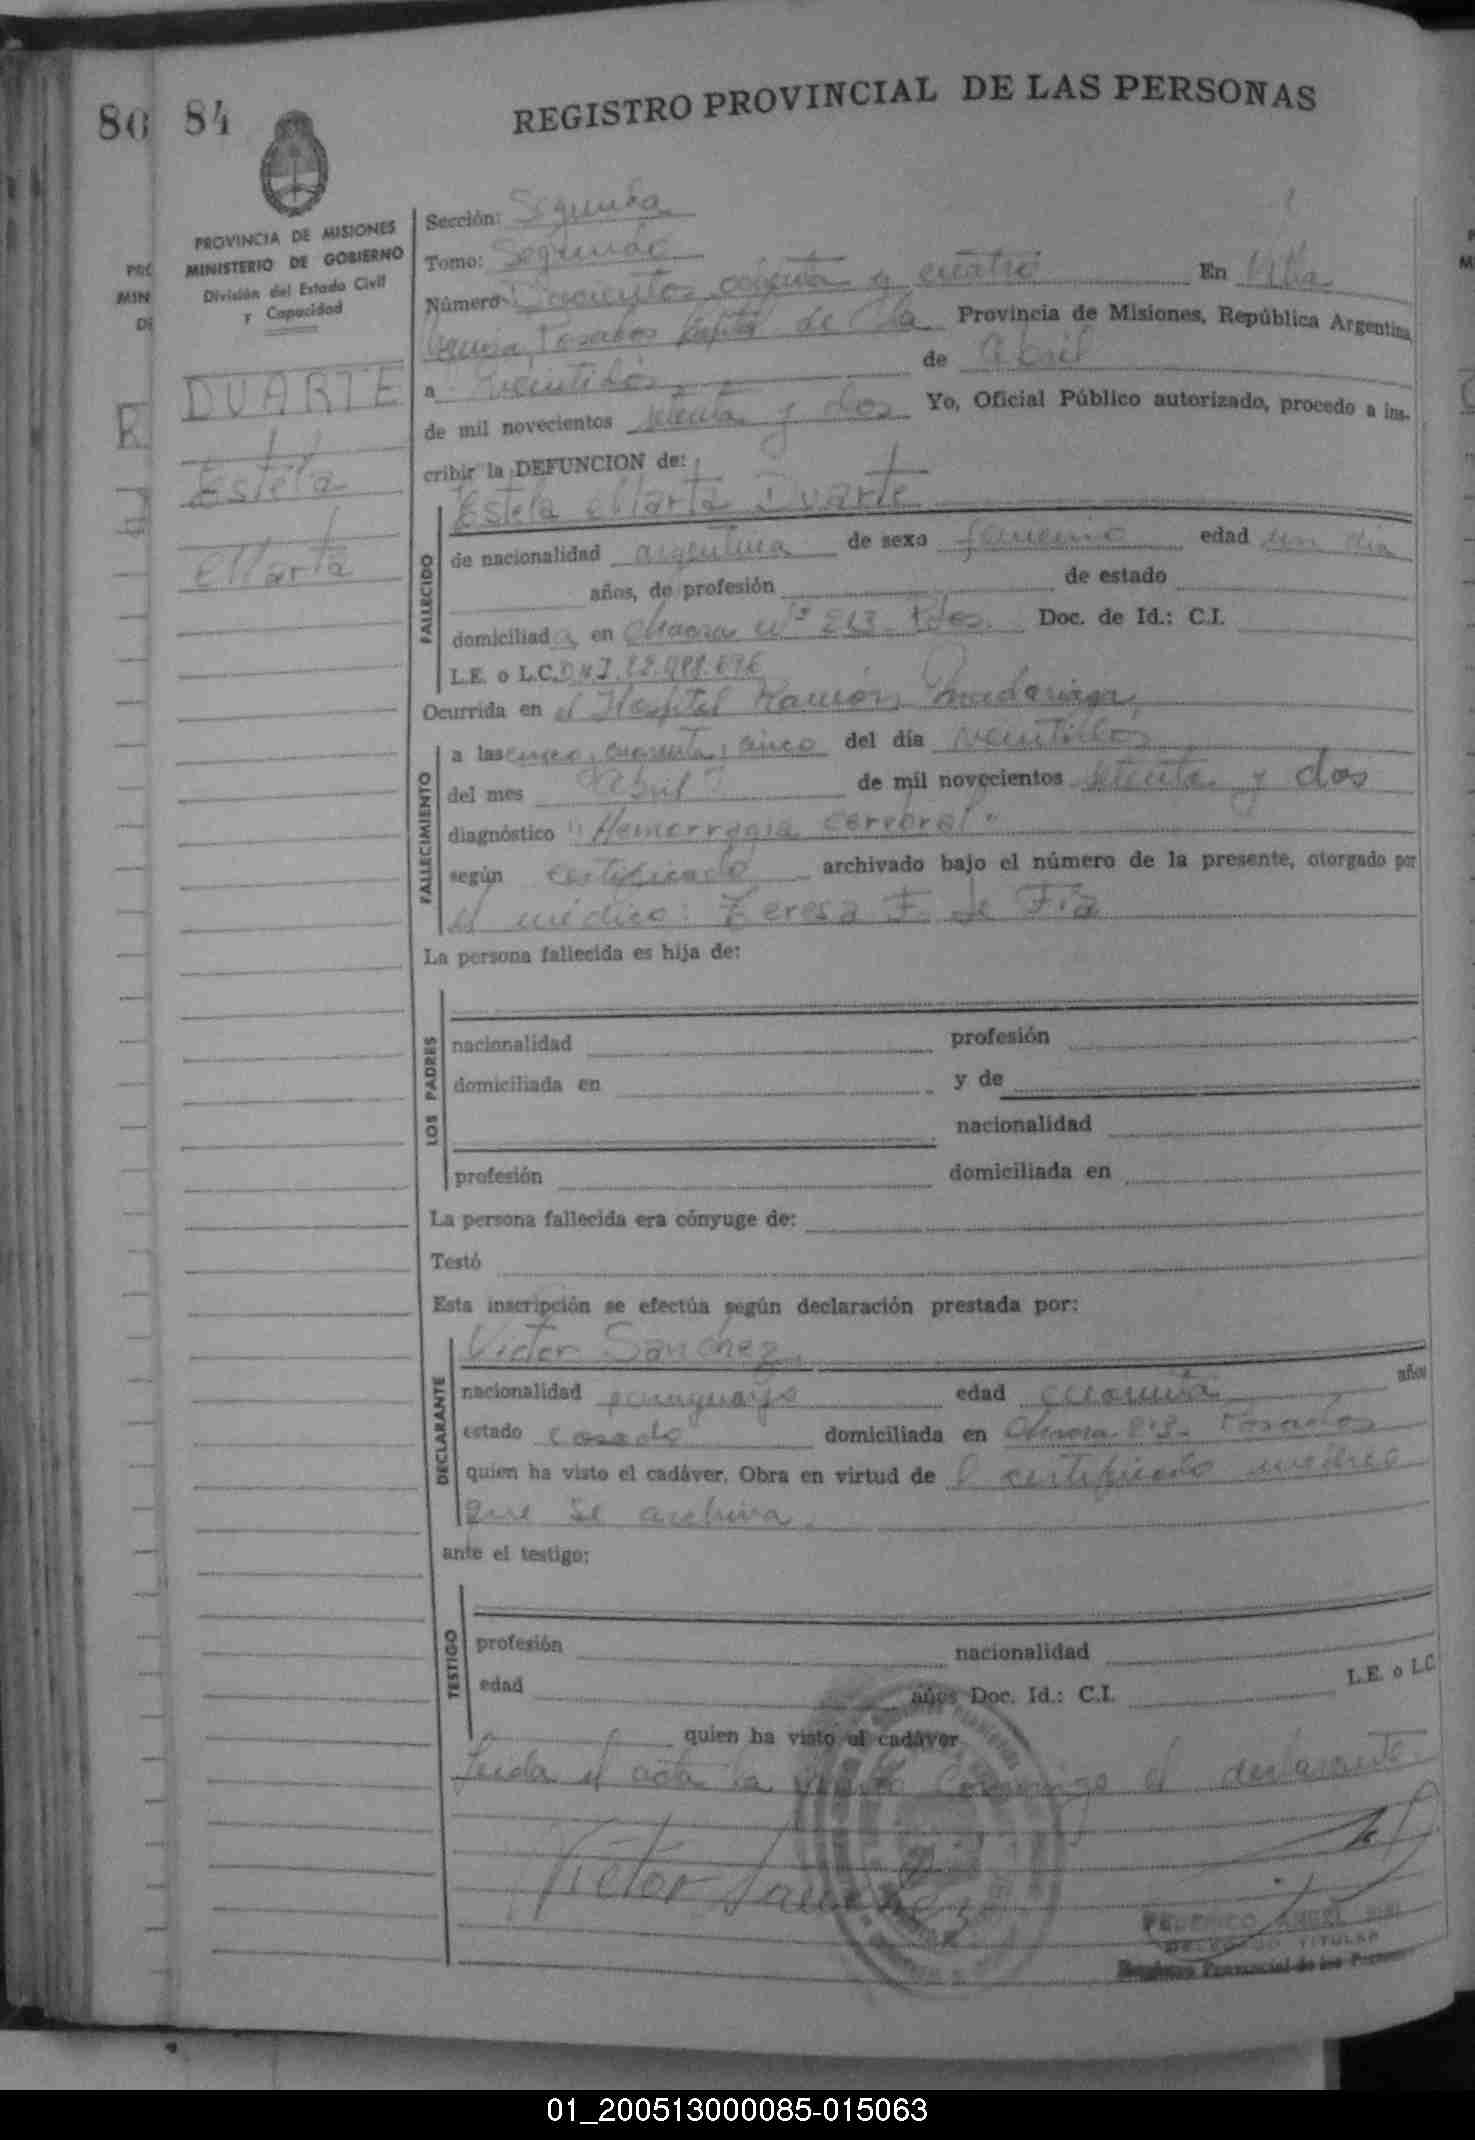 84
REGISTRO PROVINCIAL DE LAS PERSONAS
PROVINCIA DE MISIONES
MINISTERIO DE GOBIERNO
División del Estado Civil
y Capacidad
DUARTE
Estela
Marta
Sección: Segunda
Tomo: Segundo
Número Doscientos ochenta y cuatro En
Posadas Capital de la Provincia de Misiones, República Argentina
a veintidós de abril
de mil novecientos setenta y dos Yo, Oficial Público autorizado, procedo a ins-
cribir la DEFUNCION de:
Estela Marta Duarte
FALLECIDO
de nacionalidad argentina de sexo femenino edad un dia
años, de profesión de estado
domiciliada en chacra Nº 213 Pdas. Doc. de Id.: C.I.
L.E. o L.C.
Ocurrida en el Hospital Ramón Madariaga
FALLECIMIENTO
a las cinco, cuarenta y cinco del día veintidós
del mes Abril de mil novecientos setenta y dos
diagnóstico "Hemorragia cerebral"
según certificado archivado bajo el número de la presente, otorgado por
el médico: Teresa F. de
La persona fallecida es hija de:
LOS PADRES
nacionalidad profesión
domiciliada en y de
nacionalidad
profesión domiciliada en
La persona fallecida era cónyuge de:
Testó
Esta inscripción se efectúa según declaración prestada por:
DECLARANTE
Victor Sanchez
nacionalidad paraguayo edad cuarenta años
estado casado domiciliada en Chacra 213 - Posadas
quien ha visto el cadáver. Obra en virtud de l certificado médico
que se archiva.
ante el testigo:
TESTIGO
profesión nacionalidad
edad años Doc. Id.: C.I. L.E. o L.C
quien ha visto el cadáver
Leida el acta la firma conmigo el declarante.
Victor Sanchez
FEDERICO ANGEL
DELEGADO TITULAR
Registro Provincial de las Personas
01_200513000085-015063